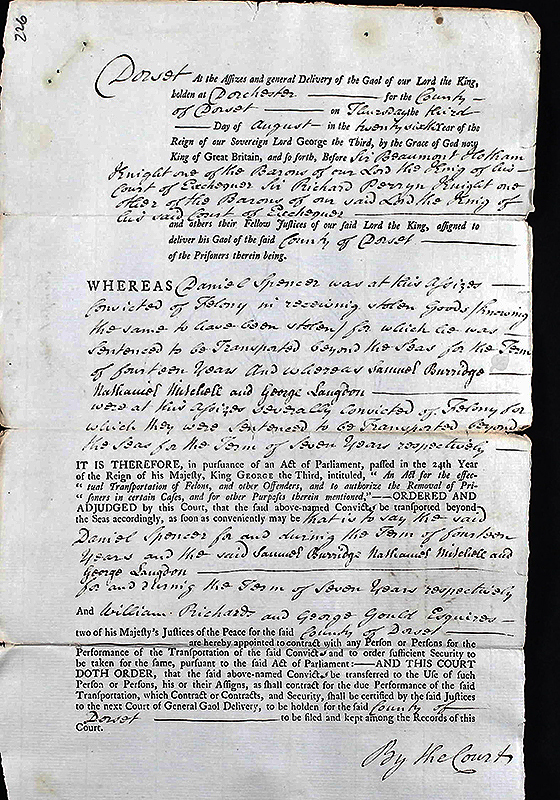 226
Dorset At the Assizes and general Delivery of the Gaol of our Lord the King,
holden at Dorchester for the County
of Dorset on Thursday the third
Day of August in the twenty sixth Year of the
Reign of our Sovereign Lord George the Third, by the Grace of God now
King of Great Britain, and so forth, Before Sir Beaumont Hotham
Knight one of the Barons of our Lord the King of his
Court of Exchequer Sir Richard Perryn Knight one
other of the Barons of our said Lord the King of
his said Court of Exchequer
and others their Fellow Justices of our said Lord the King, assigned to
deliver his Gaol of the said County of Dorset
of the Prisoners therein being.
WHEREAS Daniel Spencer was at this Assizes
Convicted of Felony in receiving stolen Goods (knowing
the same to have been stolen) for which he was
Sentenced to be Transported beyond the Seas for the Term
of fourteen Years And whereas Samuel Burridge
Nathaniel Mitchell and George Langdon
were at this Assizes severally Convicted of Felony for
which they were Sentenced to be Transported beyond
the Seas for the Term of Seven Years respectively
IT IS THEREFORE, in pursuance of an Act of Parliament, passed in the 24th Year
of the Reign of his Majesty, King GEORGE the Third, intituled, "An Act for the effec-
"tual Transportation of Felons, and other Offenders, and to authorize the Removal of Pri-
"soners in certain Cases, and for other Purposes therein mentioned,"—ORDERED AND
ADJUDGED by this Court, that the said above-named Convicts be transported beyond
the Seas accordingly, as soon as conveniently may be that is to say the said
Daniel Spencer for and during the Term of fourteen
Years and the said Samuel Burridge Nathaniel Mitchell and
George Langdon
for and during the Term of Seven Years respectively
And William Richards and George Gould Esquires
two of his Majesty's Justices of the Peace for the said County of Dorset
are hereby appointed to contract with any Person or Persons for the
Performance of the Transportation of the said Convicts and to order sufficient Security to
be taken for the same, pursuant to the said Act of Parliament:—AND THIS COURT
DOTH ORDER, that the said above-named Convicts be transferred to the Use of such
Person or Persons, his or their Assigns, as shall contract for the due Performance of the said
Transportation, which Contract or Contracts, and Security, shall be certified by the said Justices
to the next Court of General Gaol Delivery, to be holden for the said County of
Dorset to be filed and kept among the Records of this
Court.
By the Court